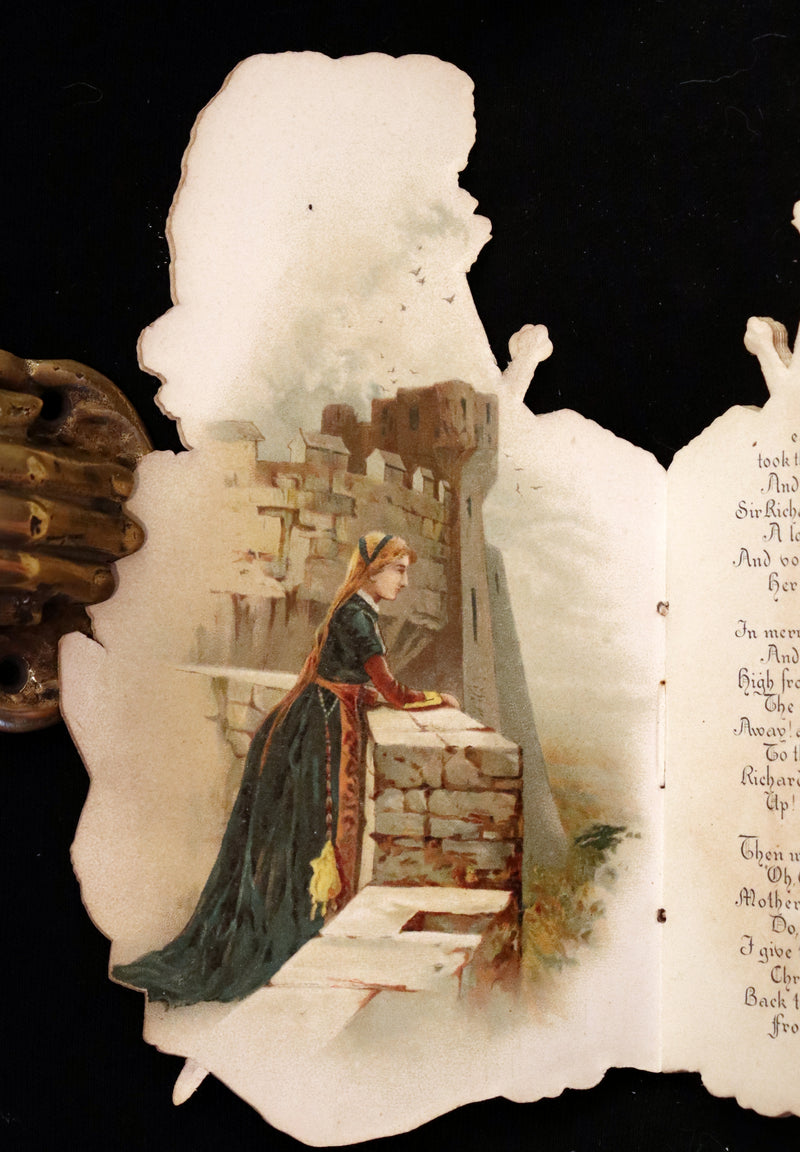 took t
And
Sir Rich
A l
And vo
Her
In merr
And
High fro
The
Away! a
To t
Richard
Up!
Then w
"Oh,
Mother
Do,
I give
Chr
Back t
Fro